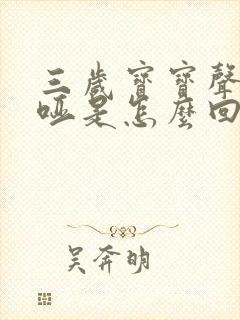 三歲寶寶聲
啞是怎麼回
吴奔明